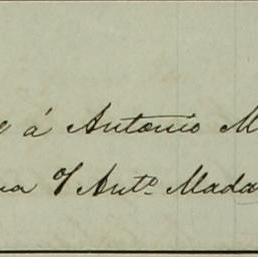 á Antonio M
a of Antº Mada